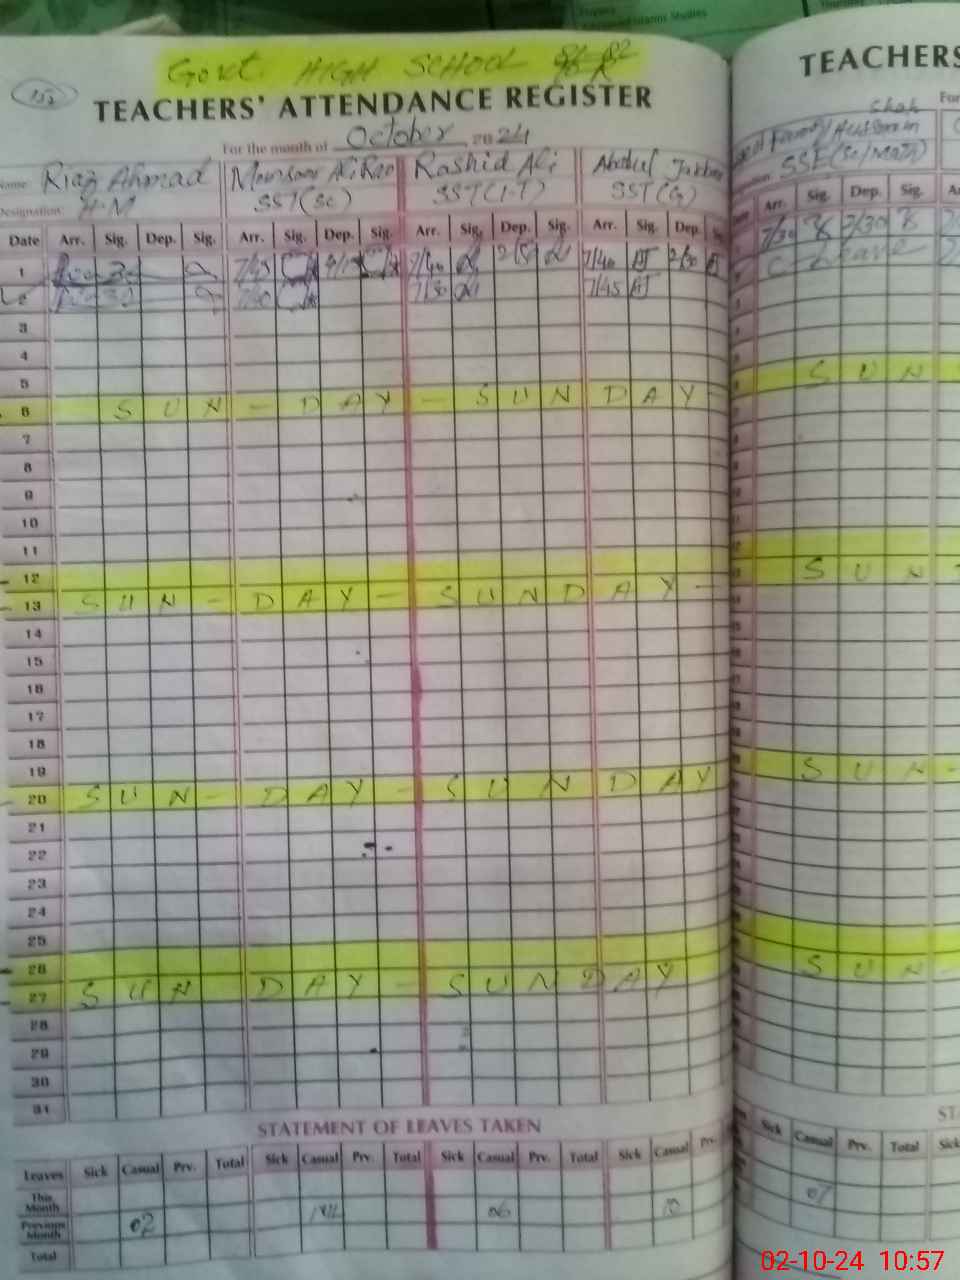 Islamic Studies
Govt. HIGH SCHOOL
152
TEACHERS' ATTENDANCE REGISTER
For the month of October 2024
Name Riaz Ahmad Ali Rao Rashid Ali Abdul Jabbar
Designation H.M SST(Sc) SST(I-T) SST(G)
Date Arr. Sig. Dep. Sig. Arr. Sig. Dep. Sig. Arr. Sig. Dep. Sig. Arr. Sig. Dep.
1 7/45 7/40 7/40 AJ 2/30
7/30 7/45 AJ
3
4
5
6 SUN - DAY - SUN DAY -
7
8
9
10
11
12
13 SUN - DAY - SUNDAY -
14
15
16
17
18
19
20 SUN - DAY - SUN DAY
21
22
23
24
25
26
27 SUN - DAY - SUNDAY
28
29
30
31
STATEMENT OF LEAVES TAKEN
Leaves Sick Casual Prv. Total Sick Casual Prv. Total Sick Casual Prv. Total Sick Casual Prv.
This Month
Previous Month 02 06 10
Total
TEACHERS
Shah
SSE(Sc/Math)
Arr. Sig. Dep. Sig.
7/30 2/30
C Leave
SUN
SUN
SUN
SUN
Sick Casual Prv. Total Sick
07
02-10-24 10:57